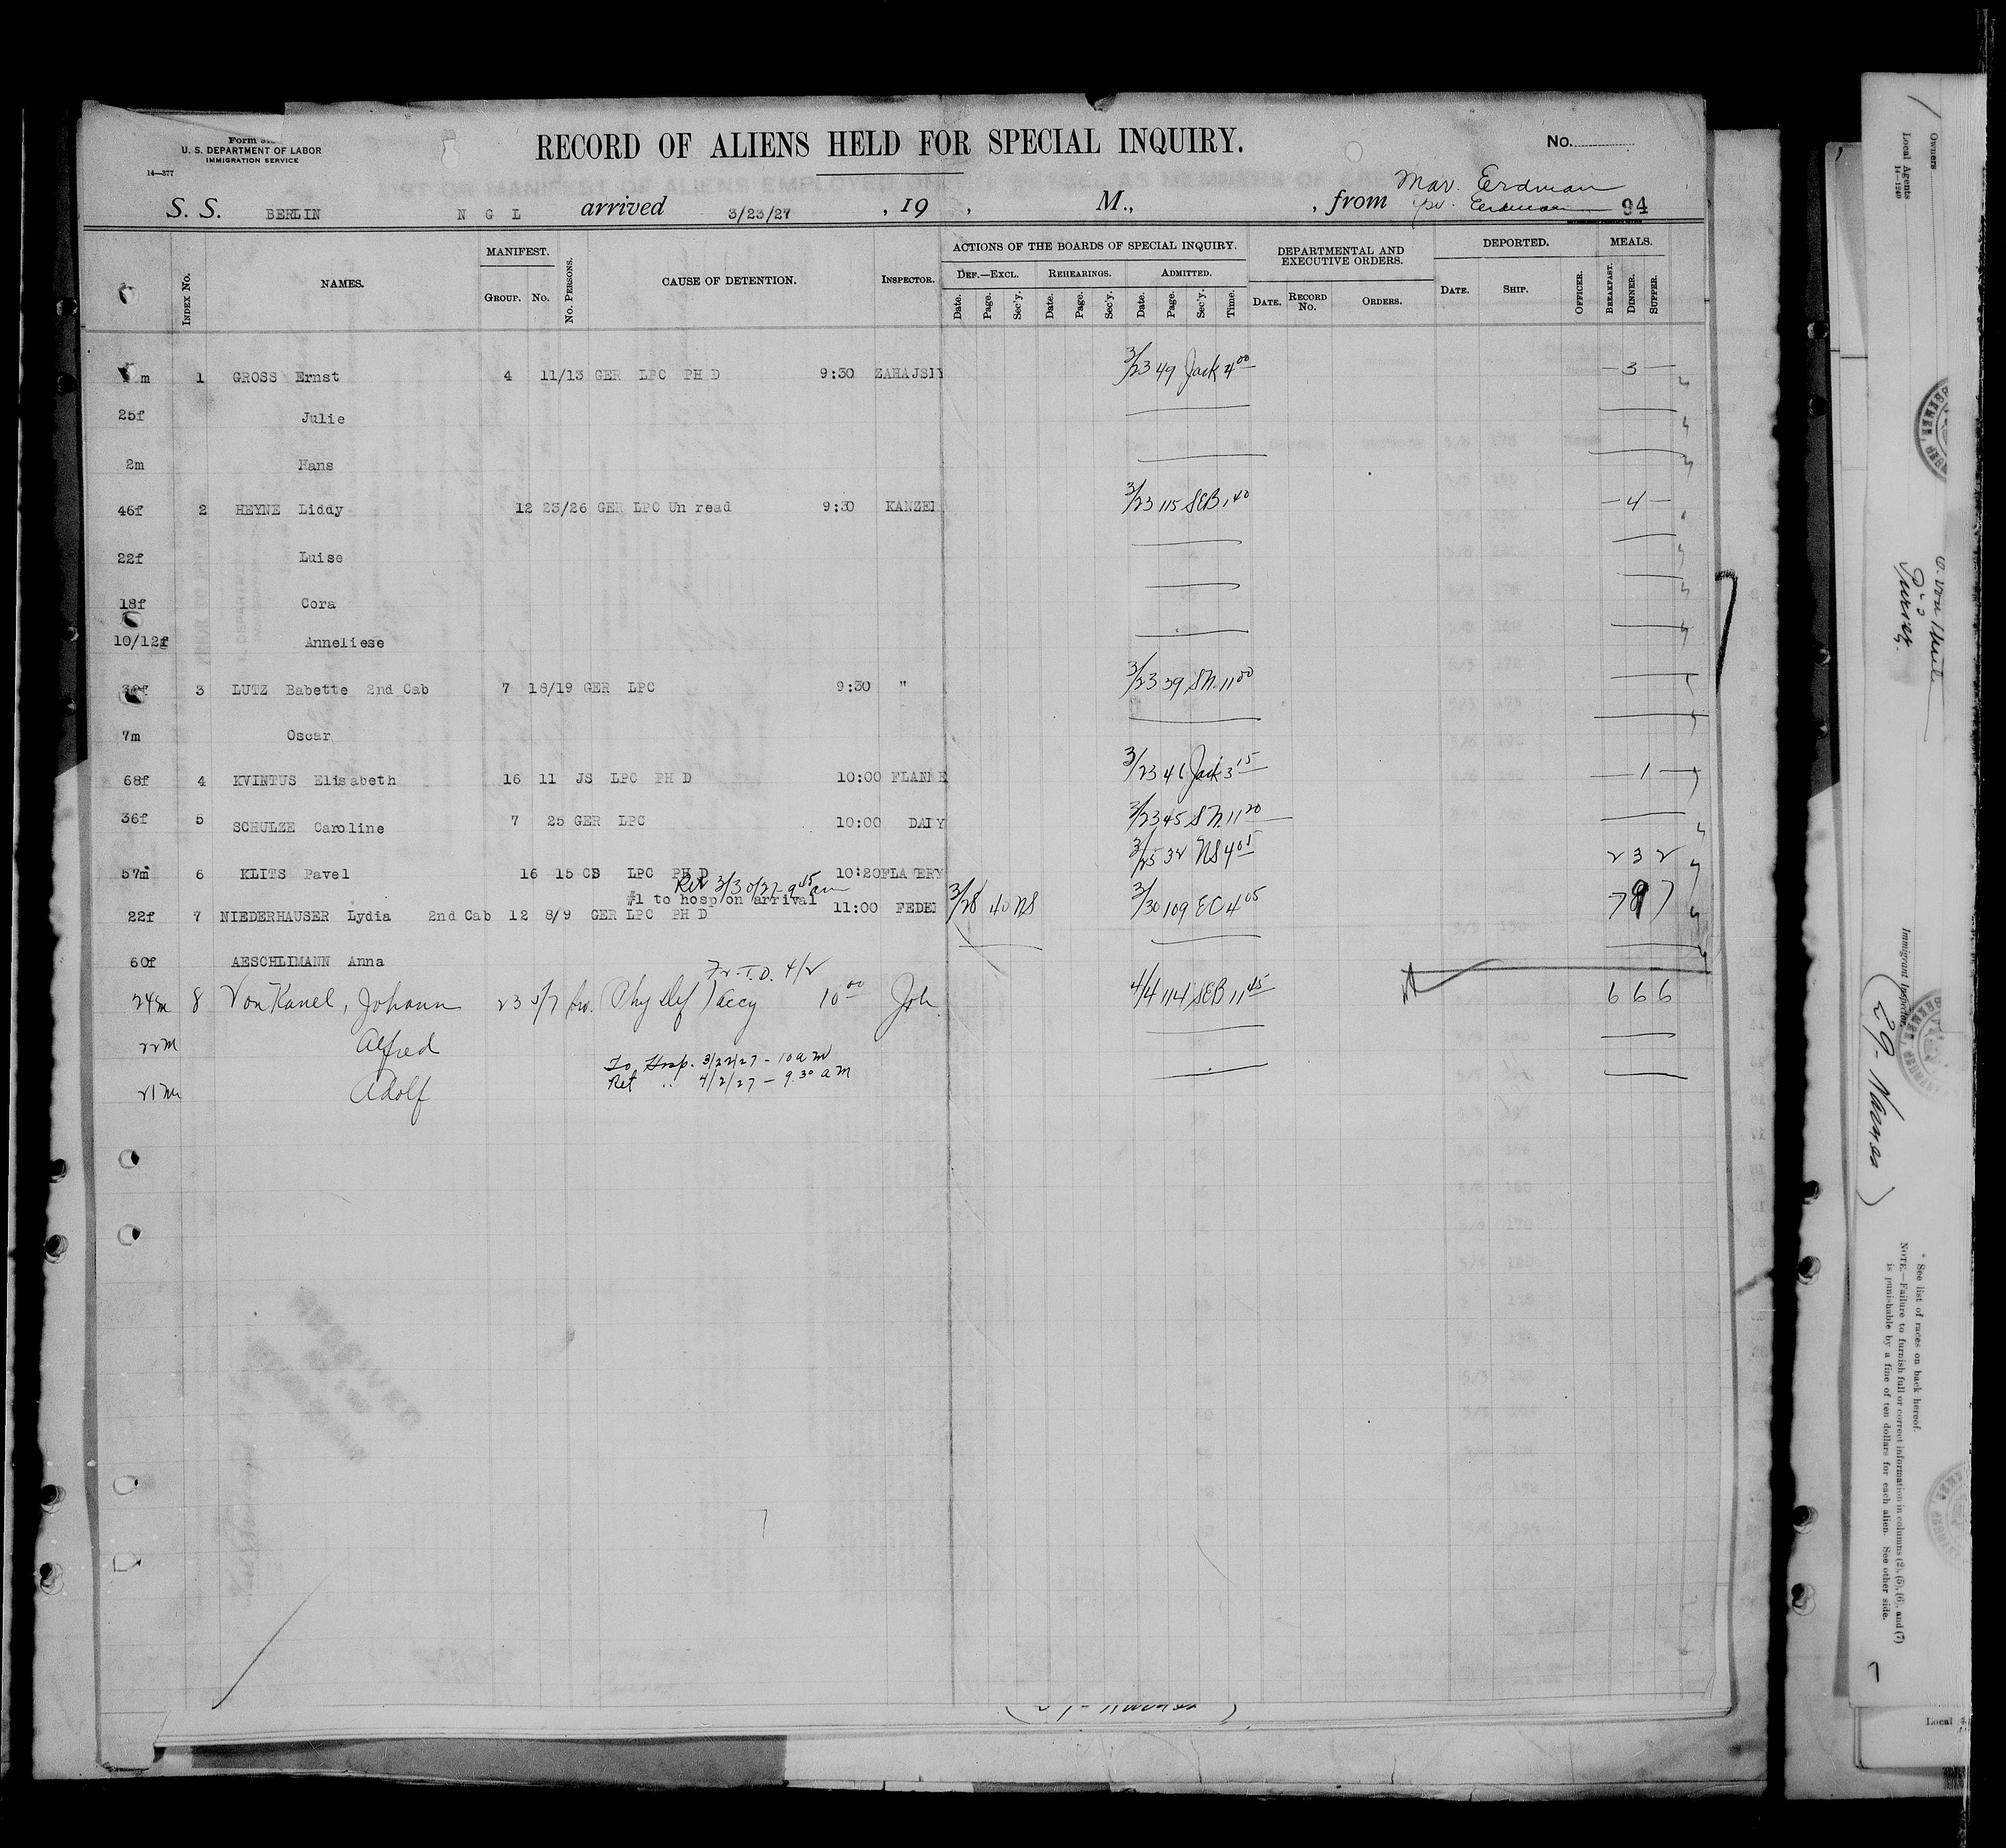 Form
U. S. DEPARTMENT OF LABOR
IMMIGRATION SERVICE
14—377
RECORD OF ALIENS HELD FOR SPECIAL INQUIRY.
No.
Mar. Erdman
S. S. BERLIN N G L arrived 3/23/27 , 19 , M., , from Erdman 94
INDEX NO. NAMES. MANIFEST. GROUP. NO. NO. PERSONS. CAUSE OF DETENTION. INSPECTOR. ACTIONS OF THE BOARDS OF SPECIAL INQUIRY. DEF.—EXCL. Date. Page. Sec'y. REHEARINGS. Date. Page. Sec'y. ADMITTED. Date. Page. Sec'y. Time. DEPARTMENTAL AND EXECUTIVE ORDERS. DATE. RECORD NO. ORDERS. DEPORTED. DATE. SHIP. OFFICER. MEALS. BREAKFAST. DINNER. SUPPER.
m 1 GROSS Ernst 4 11/13 GER LPC PH D 9:30 ZAHAJSIY 3/23 49 Jack 4 00 — 3 —
25f Julie
2m Hans
46f 2 HEYNE Liddy 12 23/26 GER LPC Un read 9:30 KANZEL 3/23 115 SEB 1 40 — 4 —
22f Luise
18f Cora
10/12f Anneliese
3 LUTZ Babette 2nd Cab 7 18/19 GER LPC 9:30 " 3/23 39 SN. 11 00
7m Oscar
68f 4 KVINTUS Elisabeth 16 11 JS LPC PH D 10:00 3/23 41 Jack 3 15 — 1 —
36f 5 SCHULZE Caroline 7 25 GER LPC 10:00 DAIY 3/23 45 SN. 11 20
57m 6 KLITS Pavel 16 15 CS LPC PH D 10:20 FLA ERY 3/25 32 NS 4 05 2 3 2
Ret 3/30/27 - 9 45 am
#1 to hosp on arrival
22f 7 NIEDERHAUSER Lydia 2nd Cab 12 8/9 GER LPC PH D 11:00 FEDE 3/28 40 NS 3/30 109 EC 4 05
60f AESCHLIMANN Anna
Fr. T.D. 4/2
24m 8 Von Kanel, Johann 23 5/7 (Phy Def) accy 10 00 Joh. 4/4 114 SEB 11 45 6 6 6
22m Alfred
To Hosp. 3/22/27 - 10 am
Ret " 4/2/27 - 9.30 am
21m Adolf
Owners
Local Agents
14—1240
Purser.
Immigrant Inspector.
* See list of races on back hereof.
NOTE.—Failure to furnish full or correct information in columns (2), (5), (6), and (7)
is punishable by a fine of ten dollars for each alien. See other side.
Local